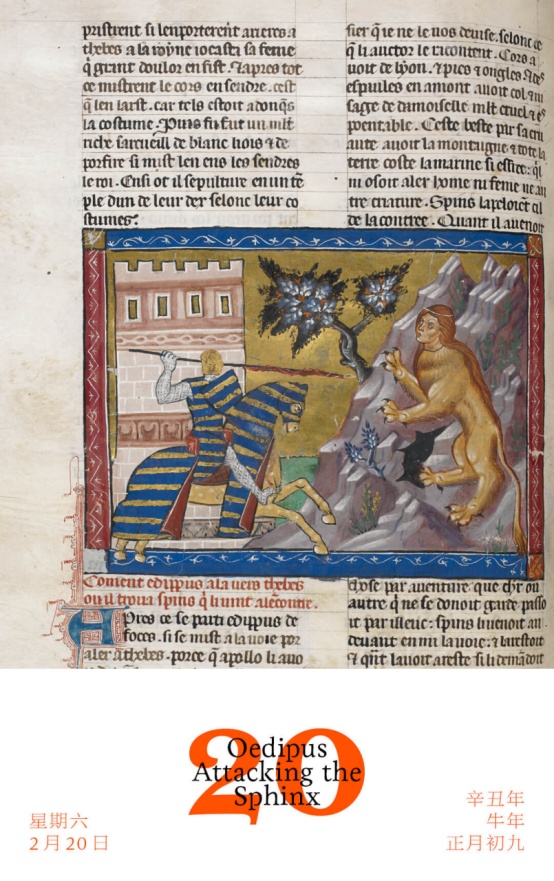 pristrent si lenporterent arieres a
thebes a la royne iocasta sa feme
q̄ grant doulor en fist. ⁊ apres tot
ce mistrent le cors en sendre. cest
q̄ len larst. car tels estoit adonq̄s
la costume. Puis fu fut un mlt
riche sarcueill de blanc bois ⁊ de
porfire si mist len ens les sendres
le roi. Ensi ot il sepulture en un tē
ple dun de leur dex selonc leur co
stumes.
sier q̄ ie ne le uos deuise. selonc ce
q̄ li auctor le racontent. Cors a
uoit de lyon. ⁊ pies ⁊ ongles ⁊ des
espaules en amont auoit col ⁊ ui
sage de damoiselle mlt cruel ⁊ es
poentable. Ceste beste par sa cru
aute auoit la montaigne ⁊ tote la
terre coste la marine si
ni osoit aler home ni feme ne au
tre criature. Spins lapeloient cil
de la contree. Quant il auenoit
Coment edippus ala uers thebes
ou il troua spins q̄ li uint alēcontre.
Apres ce se parti edippus de
foces. si se mist a la uoie por
aler a thebes. porce q̄ apollo li auo
chose par auenture que chr ou
autre q̄ ne se donoit garde passo
it par illeuc: spins li uenoit au
deuant enmi la uoie: ⁊ larestoit
⁊ q̄nt lauoit areste si li demādoit
20
Oedipus
Attacking the
Sphinx
星期六
2月20日
辛丑年
牛年
正月初九